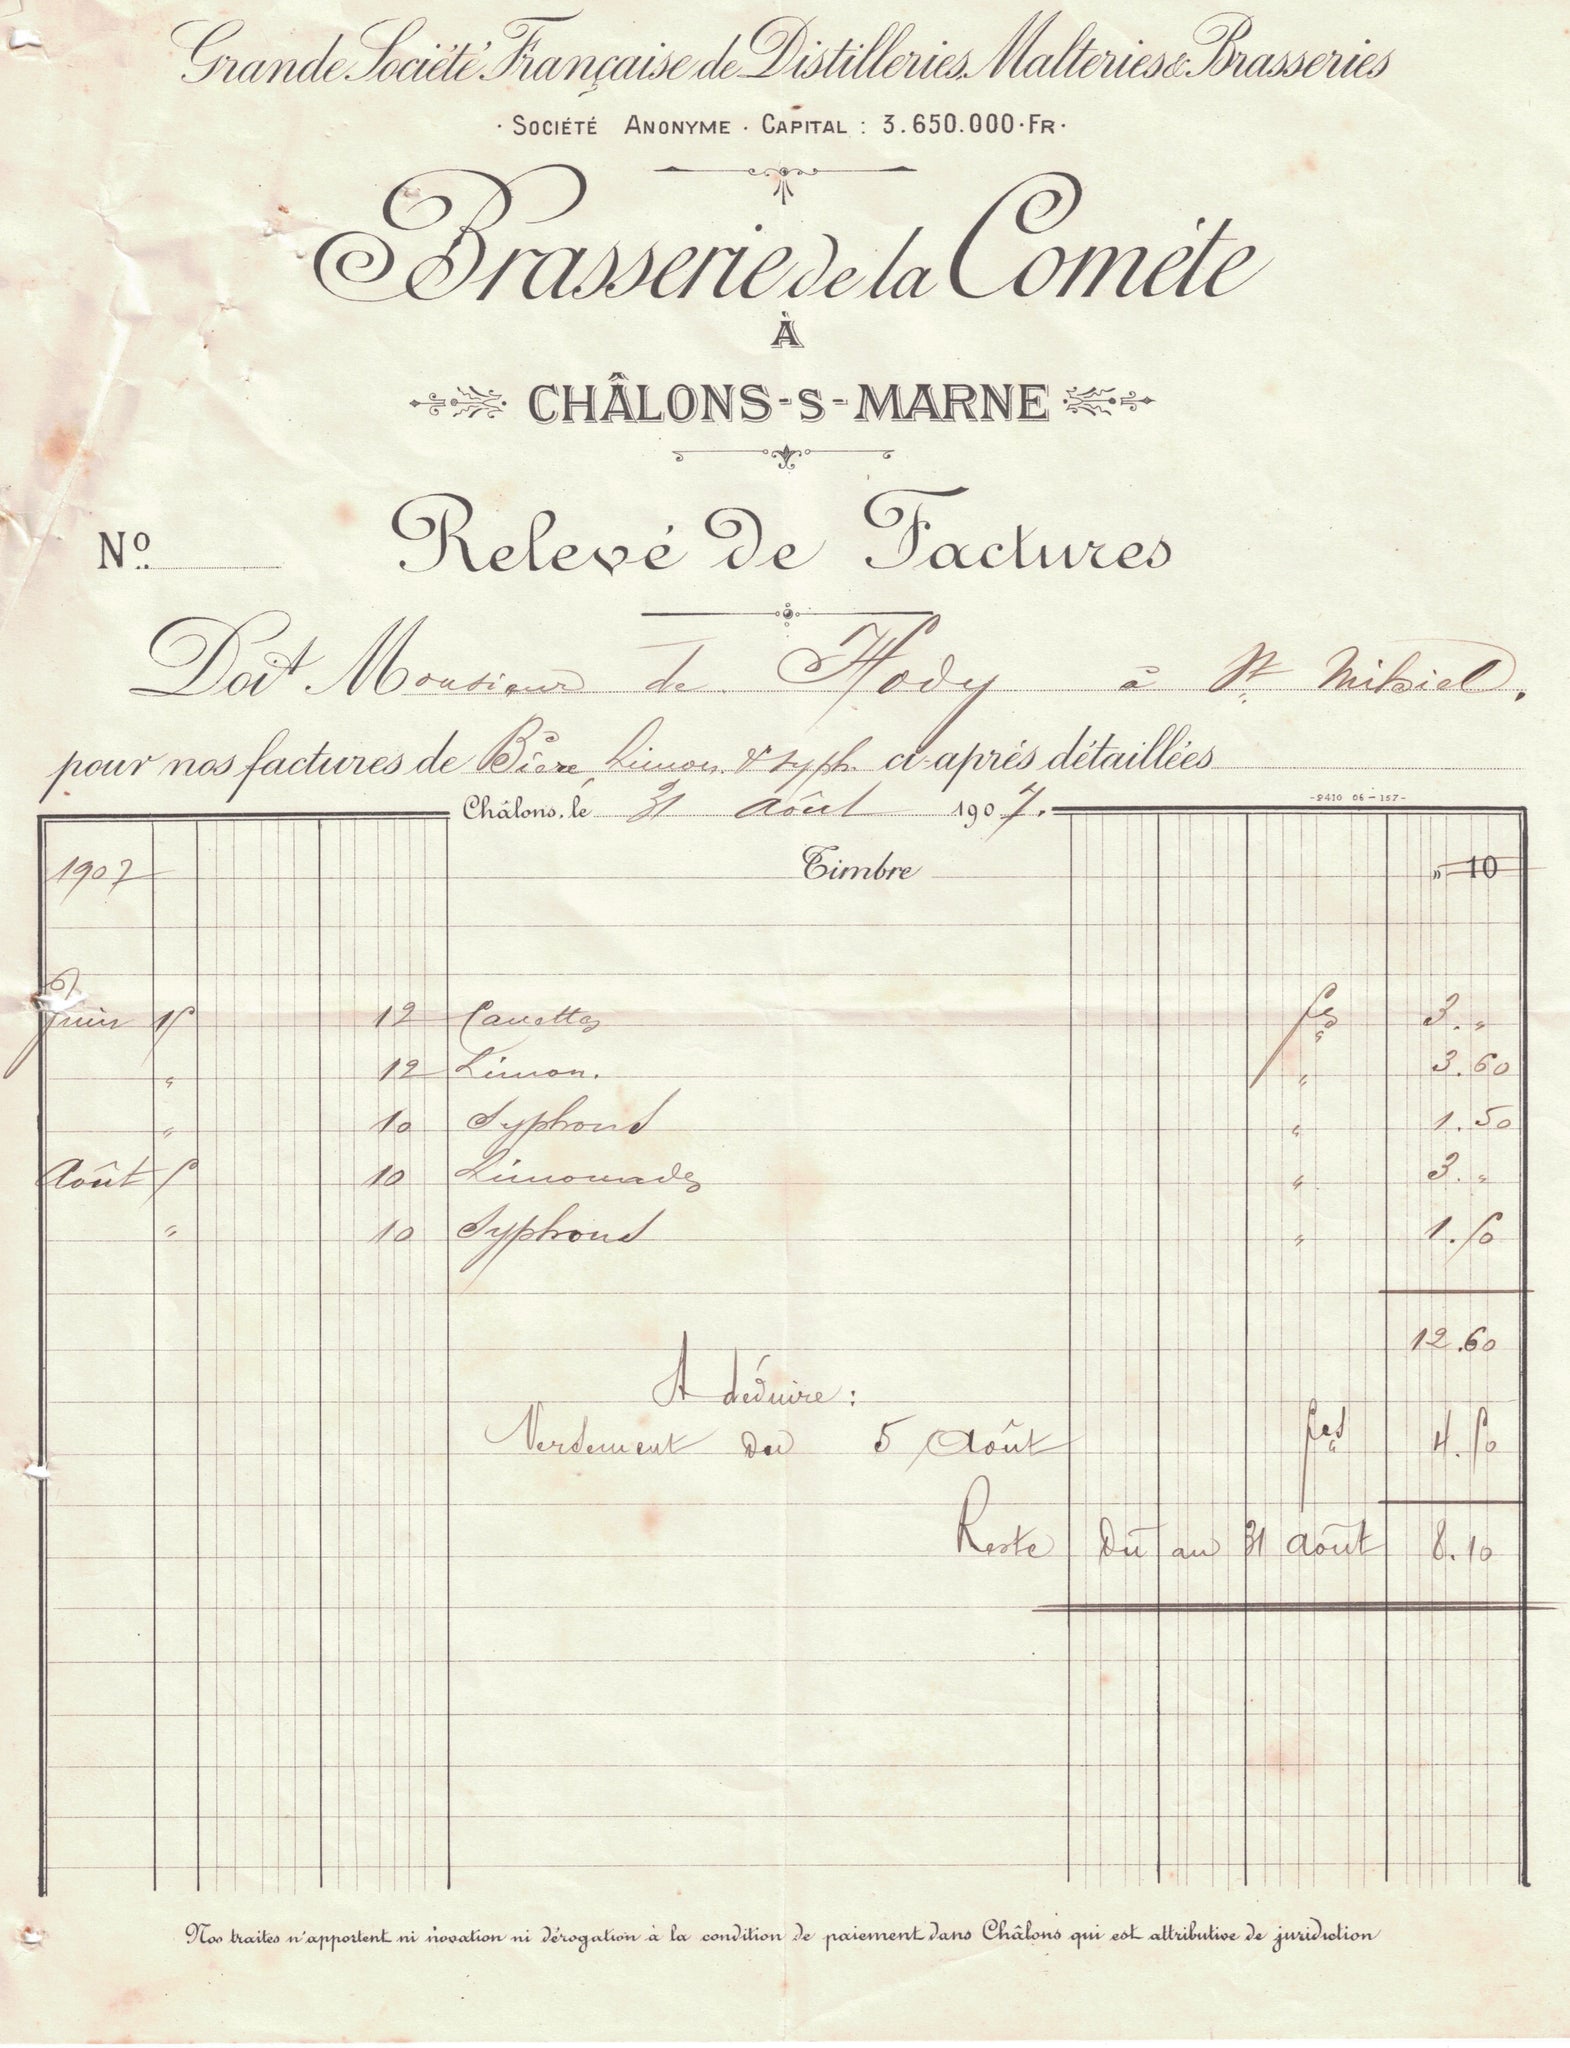 Grande Société Française de Distilleries, Malteries & Brasseries
· SOCIÉTÉ ANONYME · CAPITAL : 3.650.000 · FR ·
Brasserie de la Comète
À
CHÂLONS-S-MARNE
Nº Relevé de Factures
Doit Monsieur de Hody à St Mihiel.
pour nos factures de Bière, Limon. & syph. ci-après détaillées
Châlons, le 31 Août 1907.
1907 Timbre " 10
Juin 12 Canettes 3. "
" 12 Limon. " 3.60
" 10 Syphons " 1.50
Août 5 10 Limonades " 3. "
" 10 Syphons " 1.50
12.60
A déduire :
Versement du 5 Août 4.50
Reste dû au 31 Août 8.10
Nos traites n'apportent ni novation ni dérogation à la condition de paiement dans Châlons qui est attributive de juridiction